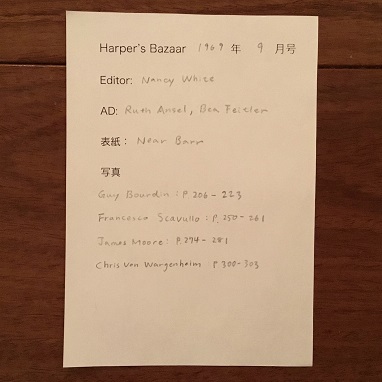 Harper's Bazaar 1969 年 9 月号
Editor: Nancy White
AD: Ruth Ansel, Bea Feitler
表紙: Near Barr
写真
Guy Bourdin : P.206-223
Francesco Scavullo : P.250-261
James Moore : P.274-281
Chris Von Wangenheim P.300-303